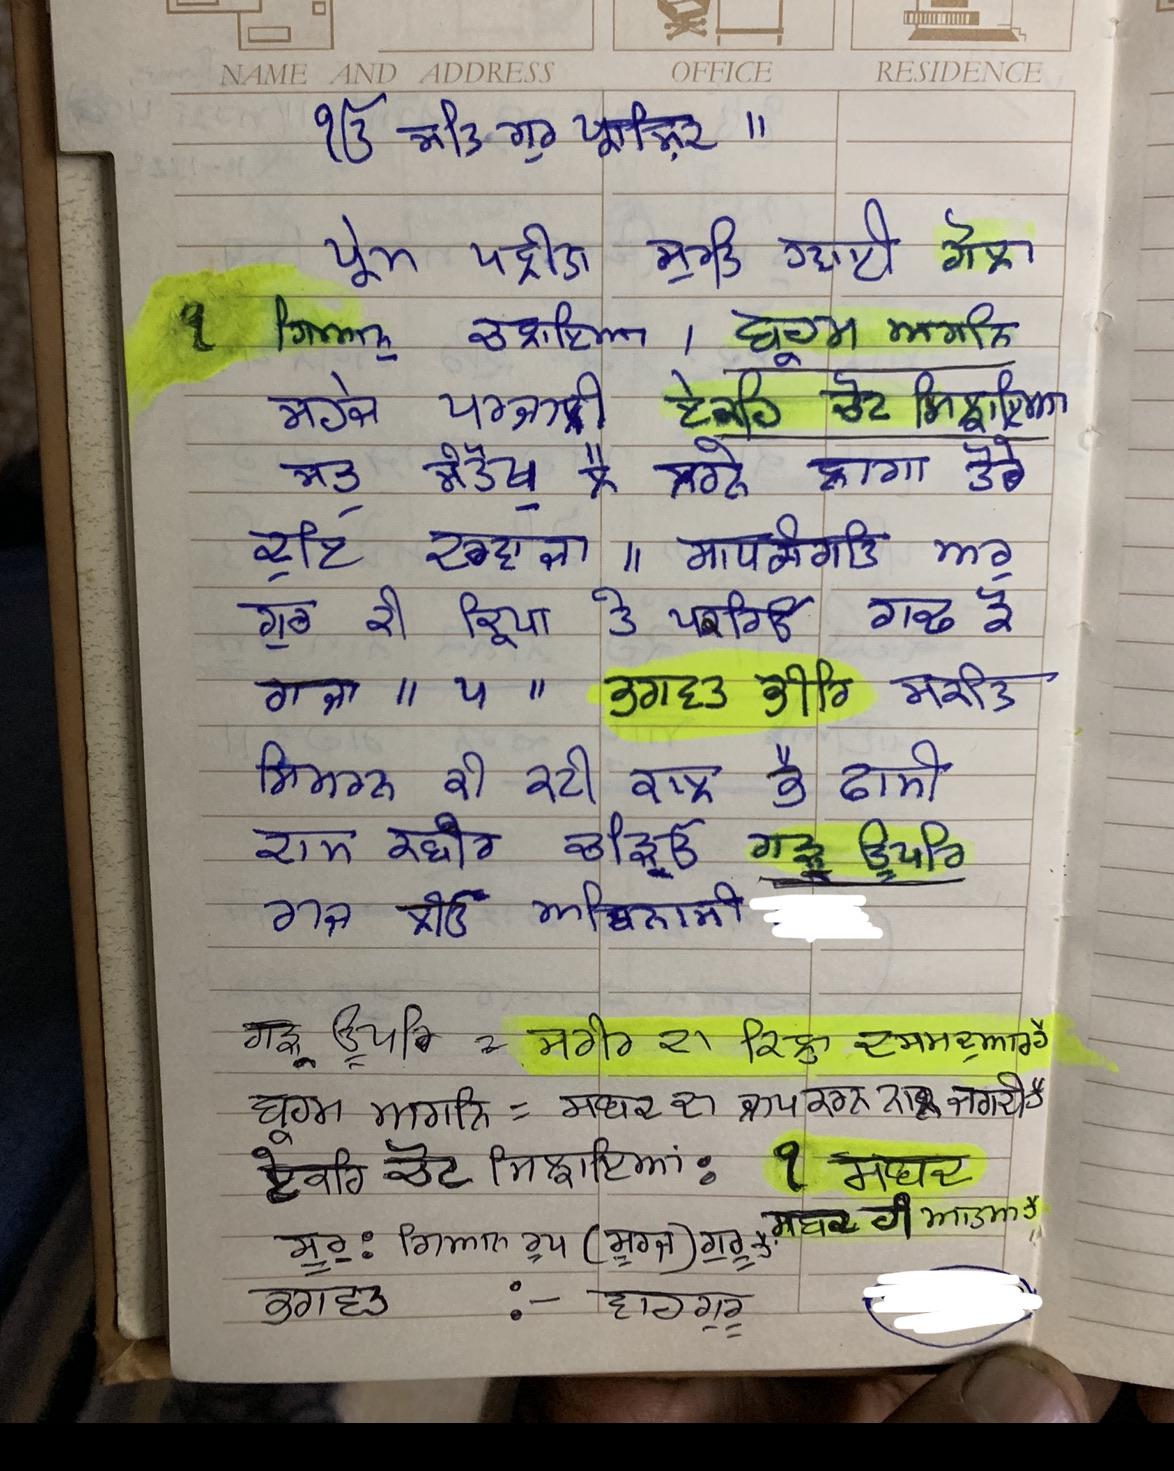 NAME AND ADDRESS OFFICE RESIDENCE
ੴ ਸਤਿ ਗੁਰ ਪ੍ਰਸਾਦਿ ॥
ਪ੍ਰੇਮ ਪਲੀਤਾ ਸੁਰਤਿ ਹਵਾਈ ਗੋਲਾ
੧ ਗਿਆਨੁ ਚਲਾਇਆ । ਬ੍ਰਹਮ ਅਗਨਿ
ਸਹਜੇ ਪਰਜਾਲੀ ਏਕਹਿ ਚੋਟ ਸਿਝਾਇਆ
ਸਤੁ ਸੰਤੋਖੁ ਲੈ ਲਰਨੇ ਲਾਗਾ ਤੋਰੇ
ਦੁਇ ਦਰਵਾਜਾ ॥ ਸਾਧਸੰਗਤਿ ਅਰੁ
ਗੁਰ ਕੀ ਕ੍ਰਿਪਾ ਤੇ ਪਕਰਿਓ ਗਢ ਕੋ
ਰਾਜਾ ॥ ੫ ॥ ਭਗਵਤ ਭੀਰਿ ਸਕਤਿ
ਸਿਮਰਨ ਕੀ ਕਟੀ ਕਾਲ ਭੈ ਫਾਸੀ
ਦਾਸ ਕਬੀਰ ਚੜਿਓ ਗੜ੍ਹ ਊਪਰਿ
ਰਾਜ ਲੀਓ ਅਬਿਨਾਸੀ
ਗੜ੍ਹ ਊਪਰਿ = ਸਰੀਰ ਦਾ ਕਿਲ੍ਹਾ ਦਸਮਦੁਆਰ ਹੈ
ਬ੍ਰਹਮ ਅਗਨਿ = ਸਬਦ ਦਾ ਜਾਪ ਕਰਨ ਨਾਲ ਜਗਦੀ ਹੈ
ਏਕਹਿ ਚੋਟ ਸਿਝਾਇਆਂ : ੧ ਸਬਦ
ਸਬਦ ਹੀ ਆਤਮਾ ਹੈ
ਸੂਰੁ : ਗਿਆਨ ਰੂਪ (ਸੂਰਜ) ਗੁਰੂ ਹੈ
ਭਗਵਤ :- ਵਾਹਗੁਰੂ